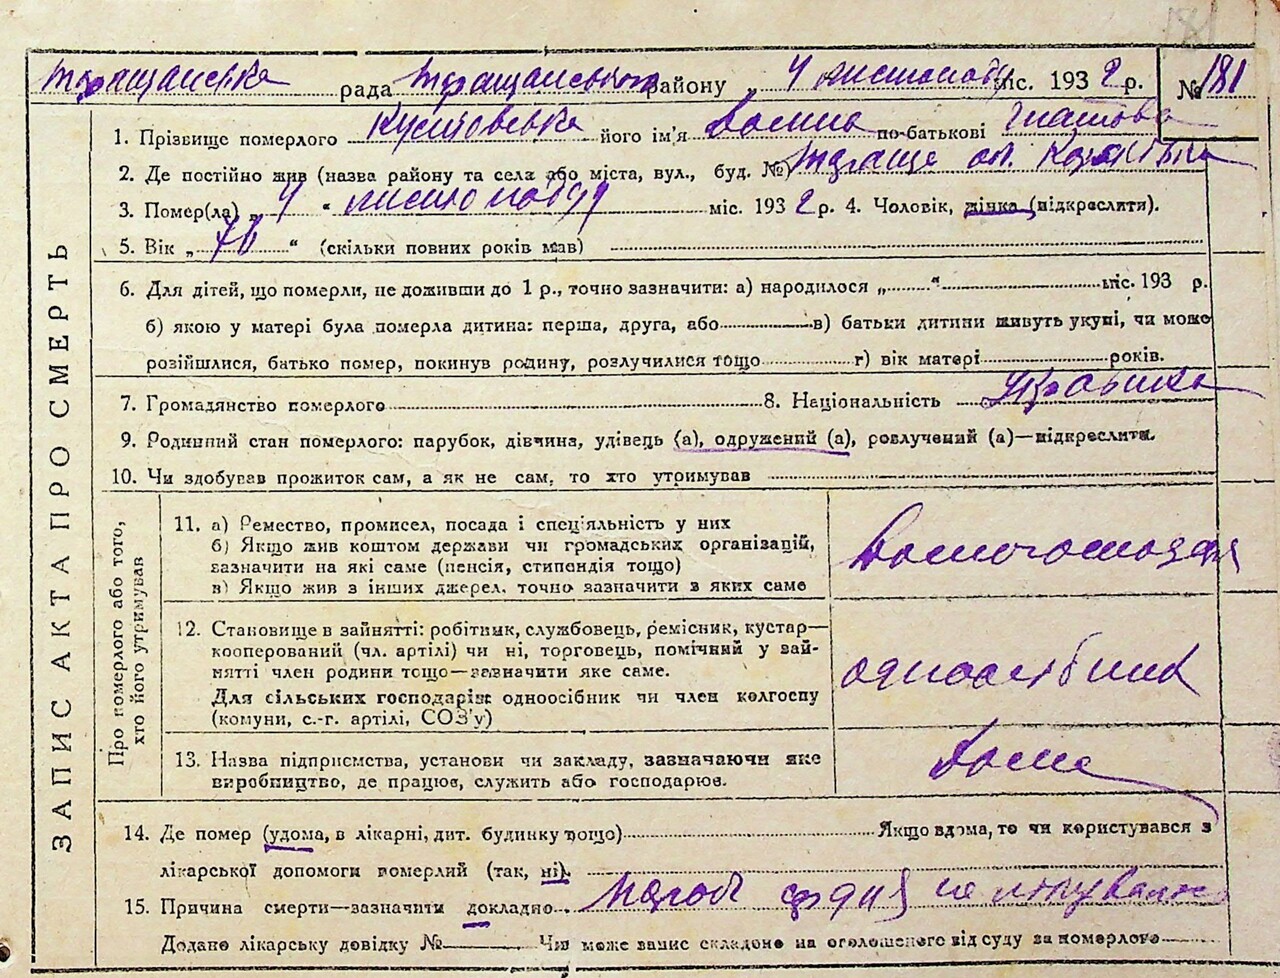 181
Таращанська рада Таращанського району „ 4 листопаду міс. 1932 р. № 181
1. Прізвище померлого його ім'я по-батькові Гнатова
2. Де постійно жив (назва району та села або міста, вул., буд. №) Тараща
3. Помер(ла) „ 4 “ листопаду міс. 1932 р. 4. Чоловік, жінка (підкреслити).
5. Вік „ “ (скільки повних років мав)
6. Для дітей, що померли, не доживши до 1 р., точно зазначити: а) народилося „ “ міс. 193 р.
б) якою у матері була померла дитина: перша, друга, або в) батьки дитини живуть укупі, чи може
розійшлися, батько помер, покинув родину, розлучилися тощо г) вік матері років.
7. Громадянство померлого 8. Національність Українка
9. Родинний стан померлого: парубок, дівчина, удівець (а), одружений (а), розлучений (а)—підкреслити.
10. Чи здобував прожиток сам, а як не сам, то хто утримував
ЗАПИС АКТА ПРО СМЕРТЬ
Про померлого або того,
хто його утримував
11. а) Ремество, промисел, посада і спеціяльність у них
б) Якщо жив коштом держави чи громадських організацій,
зазначити на які саме (пенсія, стипендія тощо)
в) Якщо жив з інших джерел, точно зазначити з яких саме
Домогосподар
12. Становище в зайнятті: робітник, службовець, ремісник, кустар—
кооперований (чл. артілі) чи ні, торговець, помічний у зай-
нятті член родини тощо—зазначити яке саме.
Для сільських господарів: одноосібник чи член колгоспу
(комуни, с.-г. артілі, СОЗ'у)
одноосібник
13. Назва підприємства, установи чи закладу, зазначаючи яке
виробництво, де працює, служить або господарює.
Дома
14. Де помер (удома, в лікарні, дит. будинку тощо) Якщо вдома, то чи користувався з
лікарської допомоги померлий (так, ні).
15. Причина смерти—зазначити докладно. Порок сердця не лікувалась
Додано лікарську довідку № Чи може запис складено на оголошеного від суду за померлого